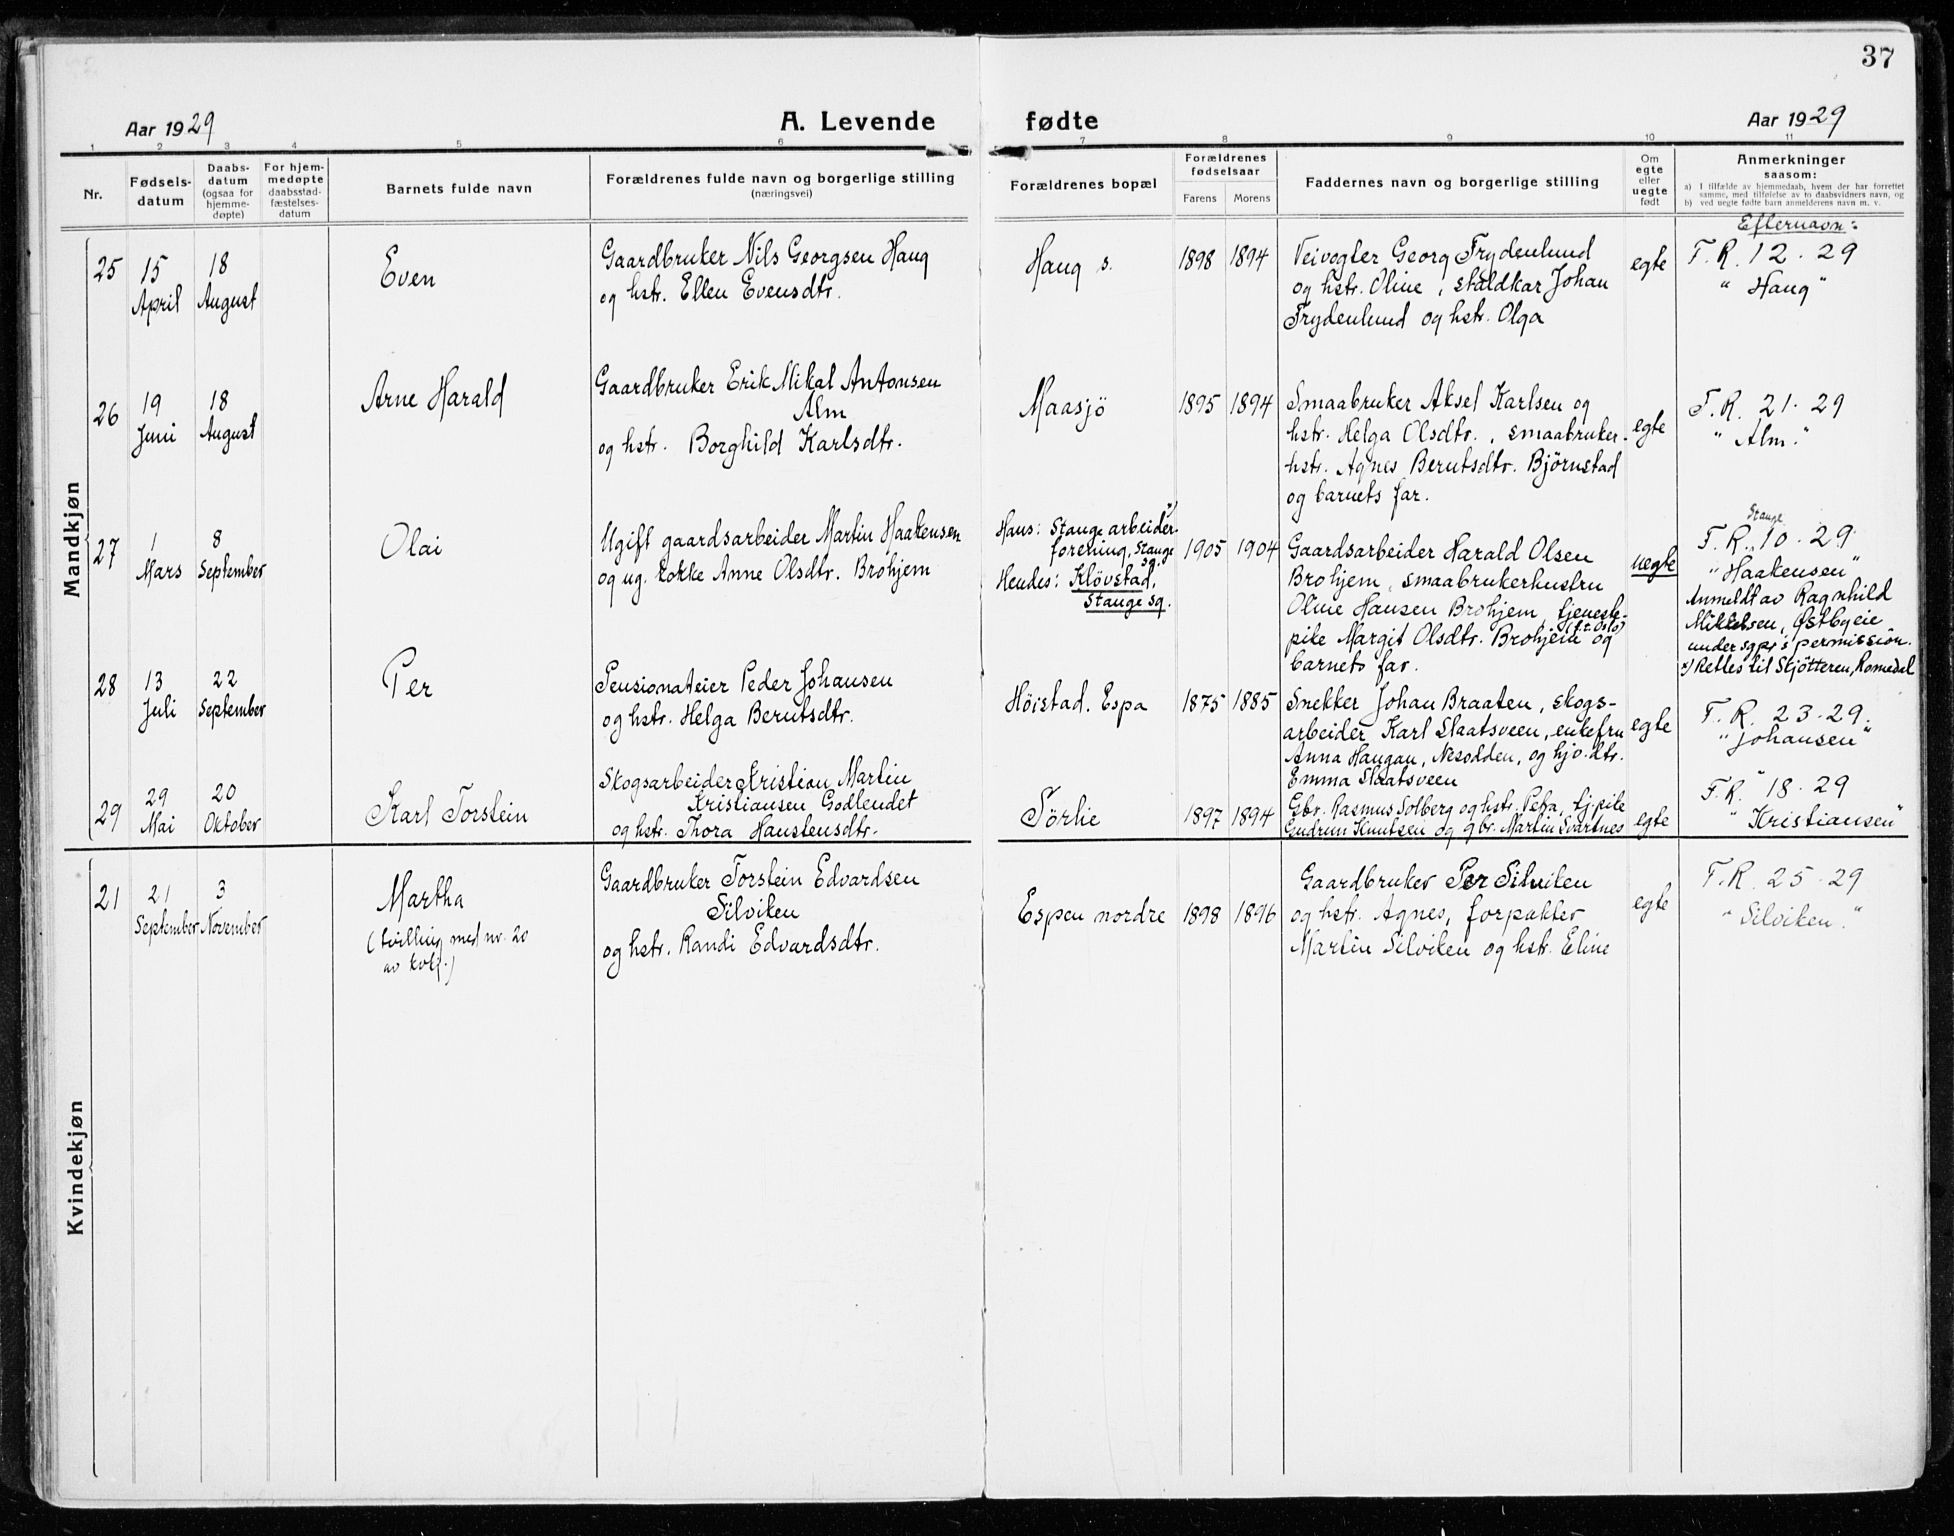 37
Aar 1929
A. Levende fødte
Aar 1929
1 2 3 4 5 6 7 8 9 10 11
Nr.
Fødsels-
datum
Daabs-
datum
(ogsaa for
hjemme-
døpte)
For hjem-
medøpte
daabsstad-
fæstelses-
datum
Barnets fulde navn
Forældrenes fulde navn og borgerlige stilling
(næringsvei)
Forældrenes bopæl
Forældrenes
fødselsaar
Farens Morens
Faddernes navn og borgerlige stilling
Om
egte
eller
uegte
født
Anmerkninger
saasom:
a) I tilfælde av hjemmedaab, hvem der har forrettet
samme, med tilføielse av to daabsvidners navn, og
b) ved uegte fødte barn anmelderens navn m. v.
Efternavn:
Mandkjøn
25
15
April
18
August
Even
Gaardbruker Nils Georgsen Haug
og hstr. Ellen Evensdtr.
Haug s.
1898 1894
Veivogter Georg Frydenlund
og hstr. Oline, staldkar Johan
Frydenlund og hstr. Olga
egte
F.R. 12 - 29
" Haug "
26
19
Juni
18
August
Arne Harald
Gaardbruker Erik Mikal Antonsen
Alm
og hstr. Borghild Karlsdtr.
Maasjö
1895 1894
Smaabruker Aksel Karlsen og
hstr. Helga Olsdtr., smaabruker-
hstr. Agnes Berntsdtr. Björnstad
og barnets far.
egte
F.R. 21 - 29
" Alm. "
27
1
Mars
8
September
Olai
Ugift gaardsarbeider Martin Haakensen
og ug. kokke Anne Olsdtr. Brohjem
Hans: Stange arbeider-
forening, Stange
sg.
Hendes: Klövstad,
Stange sg.
1905 1904
Gaardsarbeider Harald Olsen
Brohjem, smaabrukerhustru
Oline Hansen Brohjem, tjeneste-
pike Margit Olsdtr. Brohjem (f.t. Oslo) og
barnets far.
uegte
Stange
F.R. 10 - 29
" Haakensen "
Anmeldt av Ragnhild
Mikkelsen, Østbyeie
under sgpr's permission.
x) Rettes til Skjötteren, Romedal
28
13
Juli
22
September
Per
Pensionateier Peder Johansen
og hstr. Helga Berntsdtr.
Höistad. Espa
1875 1885
Snekker Johan Braaten, skogs-
arbeider Karl Slaatsveen, enkefru
Anna Haugan, Nesodden, og hjv. dtr.
Emma Slaatsveen
egte
F.R. 23 - 29.
" Johansen "
29
29
Mai
20
Oktober
Karl Torstein
Skogsarbeider Kristian Martin
Kristiansen Godlendet
og hstr. Thora Haustensdtr.
Törlie
1897 1894
Gbr. Rasmus Solberg og hstr. Petra, tj.pike
Gudrun Knutsen og gbr. Martin Svartnes
egte
F.R. 18 - 29
" Kristiansen "
Kvindekjøn
21
21
September
3
November
Martha
(tvilling med nr. 20
av kvkj.)
Gaardbruker Torstein Edvardsen
Silviken
og hstr. Randi Edvardsdtr.
Espen nordre
1898 1896
Gaardbruker Per Silviken
og hstr. Agnes, forpakter
Martin Silviken og hstr. Eline
egte
F.R. 25 - 29
" Silviken. "